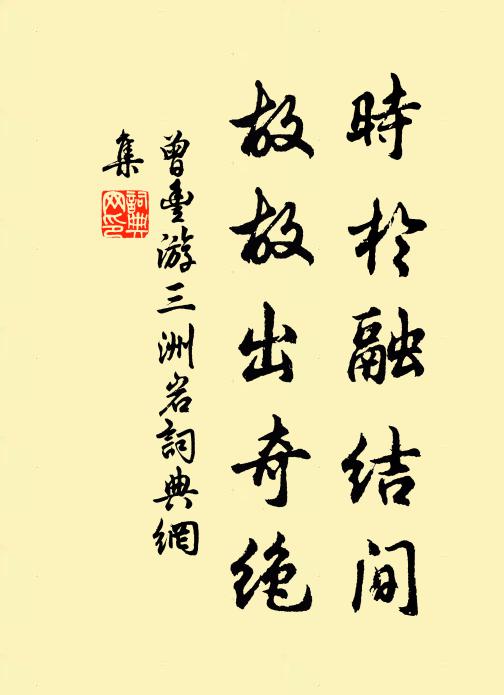 時於融結間
故故出奇絶
曾豐游三洲岩詞典網
集
詞典网印